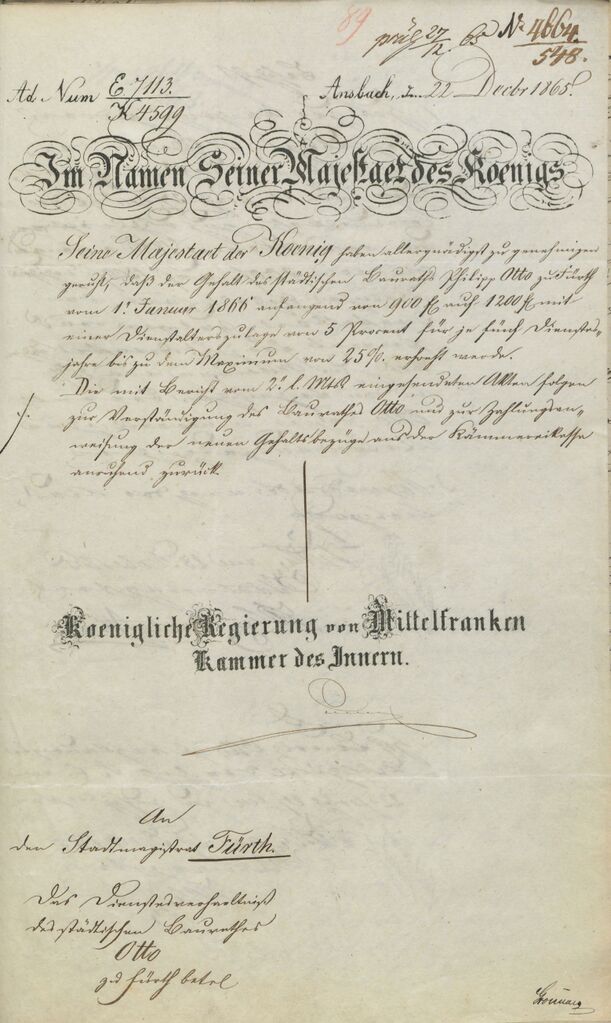 89
präs 27/12 65 No 4664/548.
Ad Num E 7113./K 4599
Ansbach, den 22 Decbr 1865.
Im Namen Seiner Majestaet des Koenigs
Seine Majestaet der Koenig haben allergnädigst zu genehmigen
geruht, daß der Gehalt des städtischen Bauraths Philipp Otto zu Fürth
vom 1. Januar 1866 anfangend von 900 f auf 1200 f mit
einer Dienstalterszulage von 5 Procent für je fünf Dienstes-
jahre bis zu dem Maximum von 25%. erhöht werde.
Die mit Bericht vom 2. l. Mts. eingesendeten Akten folgen
zur Verständigung des Baurathes Otto und zur Zahlungsan-
weisung der neuen Gehaltsbezüge aus der Kämmereikasse
anruhend zurück.
Koenigliche Regierung von Mittelfranken
Kammer des Innern.
An
den Stadtmagistrat Fürth.
Das Dienstesverhaeltniß
des städtischen Baurathes
Otto
zu Fürth betr